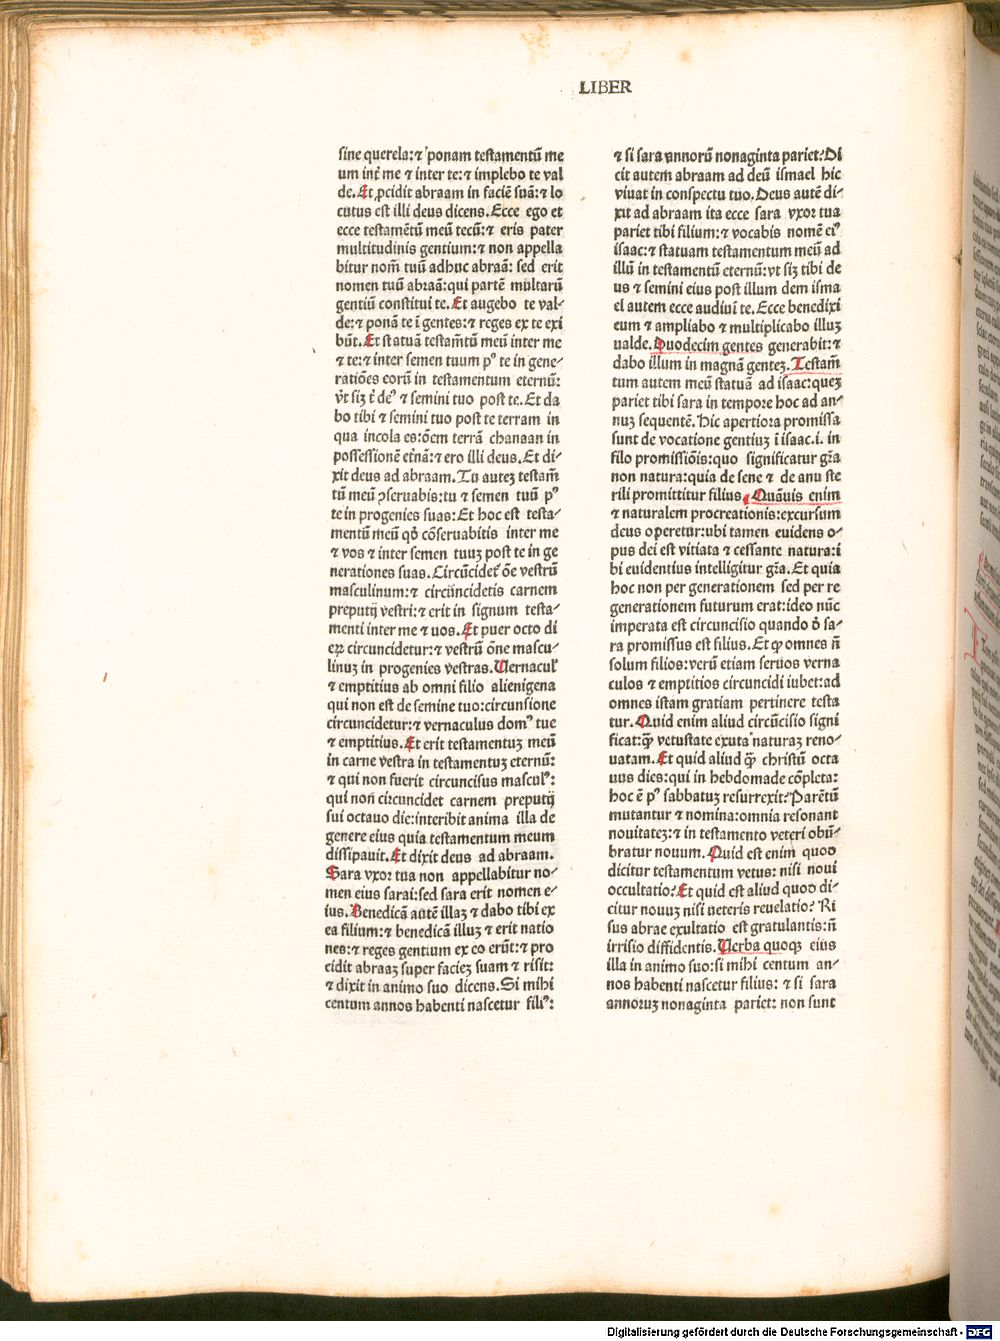 LIBER
sine querela:⁊ ponam testamentū me
um int̄ me ⁊ inter te:⁊ implebo te val
de.Et ꝓcidit abraam in faciē suā:⁊ lo
cutus est illi deus dicens.Ecce ego et
ecce testamētū meū tecū:⁊ eris pater
multitudinis gentium:⁊ non appella
bitur nom̄ tuū adhuc abraā: sed erit
nomen tuū abraā:qui partē multarū
gentiū constitui te.Et augebo te val⸗
de:⁊ ponā te ī gentes:⁊ reges ex te exi
būt.Et statuā testam̄tū meū inter me
⁊ te:⁊ inter semen tuum pꝰ te in gene⸗
ratiōes eorū in testamentum eternū:
vt siꝫ t̄ deꝰ ⁊ semini tuo post te.Et da
bo tibi ⁊ semini tuo post te terram in
qua incola es:oēm terrā chanaan in
possessionē et̄nā:⁊ ero illi deus.Et di⸗
xit deus ad abraam.Tu auteꝫ testam̄
tū meū ꝯseruabis:tu ⁊ semen tuū pꝰ
te in progenies suas:Et hoc est testa⸗
mentū meū qd̄ cōseruabitis inter me
⁊ vos ⁊ inter semen tuuꝫ post te in ge
nerationes suas.Circūcidet̄ oē vestrū
masculinum:⁊ circūncidetis carnem
preputij vestri:⁊ erit in signum testa⸗
menti inter me ⁊ uos.Et puer octo di
eꝝ circuncidetur:⁊ vestrū ōne mascu⸗
linuꝫ in progenies vestras.Vernacul̕
⁊ emptitius ab omni filio alienigena
qui non est de semine tuo:circunsione
circuncidetur:⁊ vernaculus domꝰ tue
⁊ emptitius.Et erit testamentuꝫ meū
in carne vestra in testamentuꝫ eternū:
⁊ qui non fuerit circuncisus masculꝰ:
qui non circuncidet carnem preputij
sui octauo die:interibit anima illa de
genere eius quia testamentum meum
dissipauit.Et dixit deus ad abraam.
Sara vxor tua non appellabitur no⸗
men eius sarai:sed sara erit nomen e⸗
ius.Benedicā autē illaꝫ ⁊ dabo tibi ex
ea filium:⁊ benedicā illuꝫ ⁊ erit natio
nes:⁊ reges gentium ex eo erūt:⁊ pro
cidit abraaꝫ super facieꝫ suam ⁊ risit:
⁊ dixit in animo suo dicens.Si mihi
centum annos habenti nascetur filiꝰ:
⁊ si sara annorū nonaginta pariet?Di
cit autem abraam ad deū ismael hic
viuat in conspectu tuo.Deus autē di⸗
xit ad abraam ita ecce sara vxor tua
pariet tibi filium:⁊ vocabis nomē eiꝰ
isaac:⁊ statuam testamentum meū ad
illū in testamentū eternū:vt siꝫ tibi de
us ⁊ semini eius post illum dem isma
el autem ecce audiui te.Ecce benedixi
eum ⁊ ampliabo ⁊ multiplicabo illuꝫ
ualde.Duodecim gentes generabit:⁊
dabo illum in magnā genteꝫ.Testam̄
tum autem meū statuā ad isaac:queꝫ
pariet tibi sara in tempore hoc ad an⸗
nuꝫ sequentē.Hic apertiora promissa
sunt de vocatione gentiuꝫ ī isaac.i. in
filo promissiōis:quo significatur gr̄a
non natura:quia de sene ⁊ de anu ste
rili promittitur filius.Quāuis enim
⁊ naturalem procreationis:excursum
deus operetur:ubi tamen euidens o⸗
pus dei est vitiata ⁊ cessante natura:i
bi euidentius intelligitur gr̄a.Et quia
hoc non per generationem sed per re
generationem futurum erat:ideo nūc
imperata est circuncisio quando d̄ sa⸗
ra promissus est filius.Et ꝙ omnes n̄
solum filios:verū etiam seruos verna
culos ⁊ emptitios circuncidi iubet:ad
omnes istam gratiam pertinere testa
tur.Quid enim aliud circūcisio signi
ficat:ꝙ̄ vetustate exuta naturaꝫ reno⸗
uatam.Et quid aliud ꝙ̄ christū octa
uus dies:qui in hebdomade cōpleta:
hoc ē pꝰ sabbatuꝫ resurrexit?Parētū
mutantur ⁊ nomina:omnia resonant
nouitateꝫ:⁊ in testamento veteri obū⸗
bratur nouum.Quid est enim quod
dicitur testamentum vetus: nisi noui
occultatio?Et quid est aliud quod di⸗
citur nouuꝫ nisi ueteris reuelatio? Ri
sus abrae exultatio est gratulantis:n̄
irrisio diffidentis.Verba quoqꝫ eius
illa in animo suo:si mihi centum an⸗
nos habenti nascetur filius: ⁊ si sara
annoruꝫ nonaginta pariet: non sunt
Digitalisierung gefördert durch die Deutsche Forschungsgemeinschaft - DFG